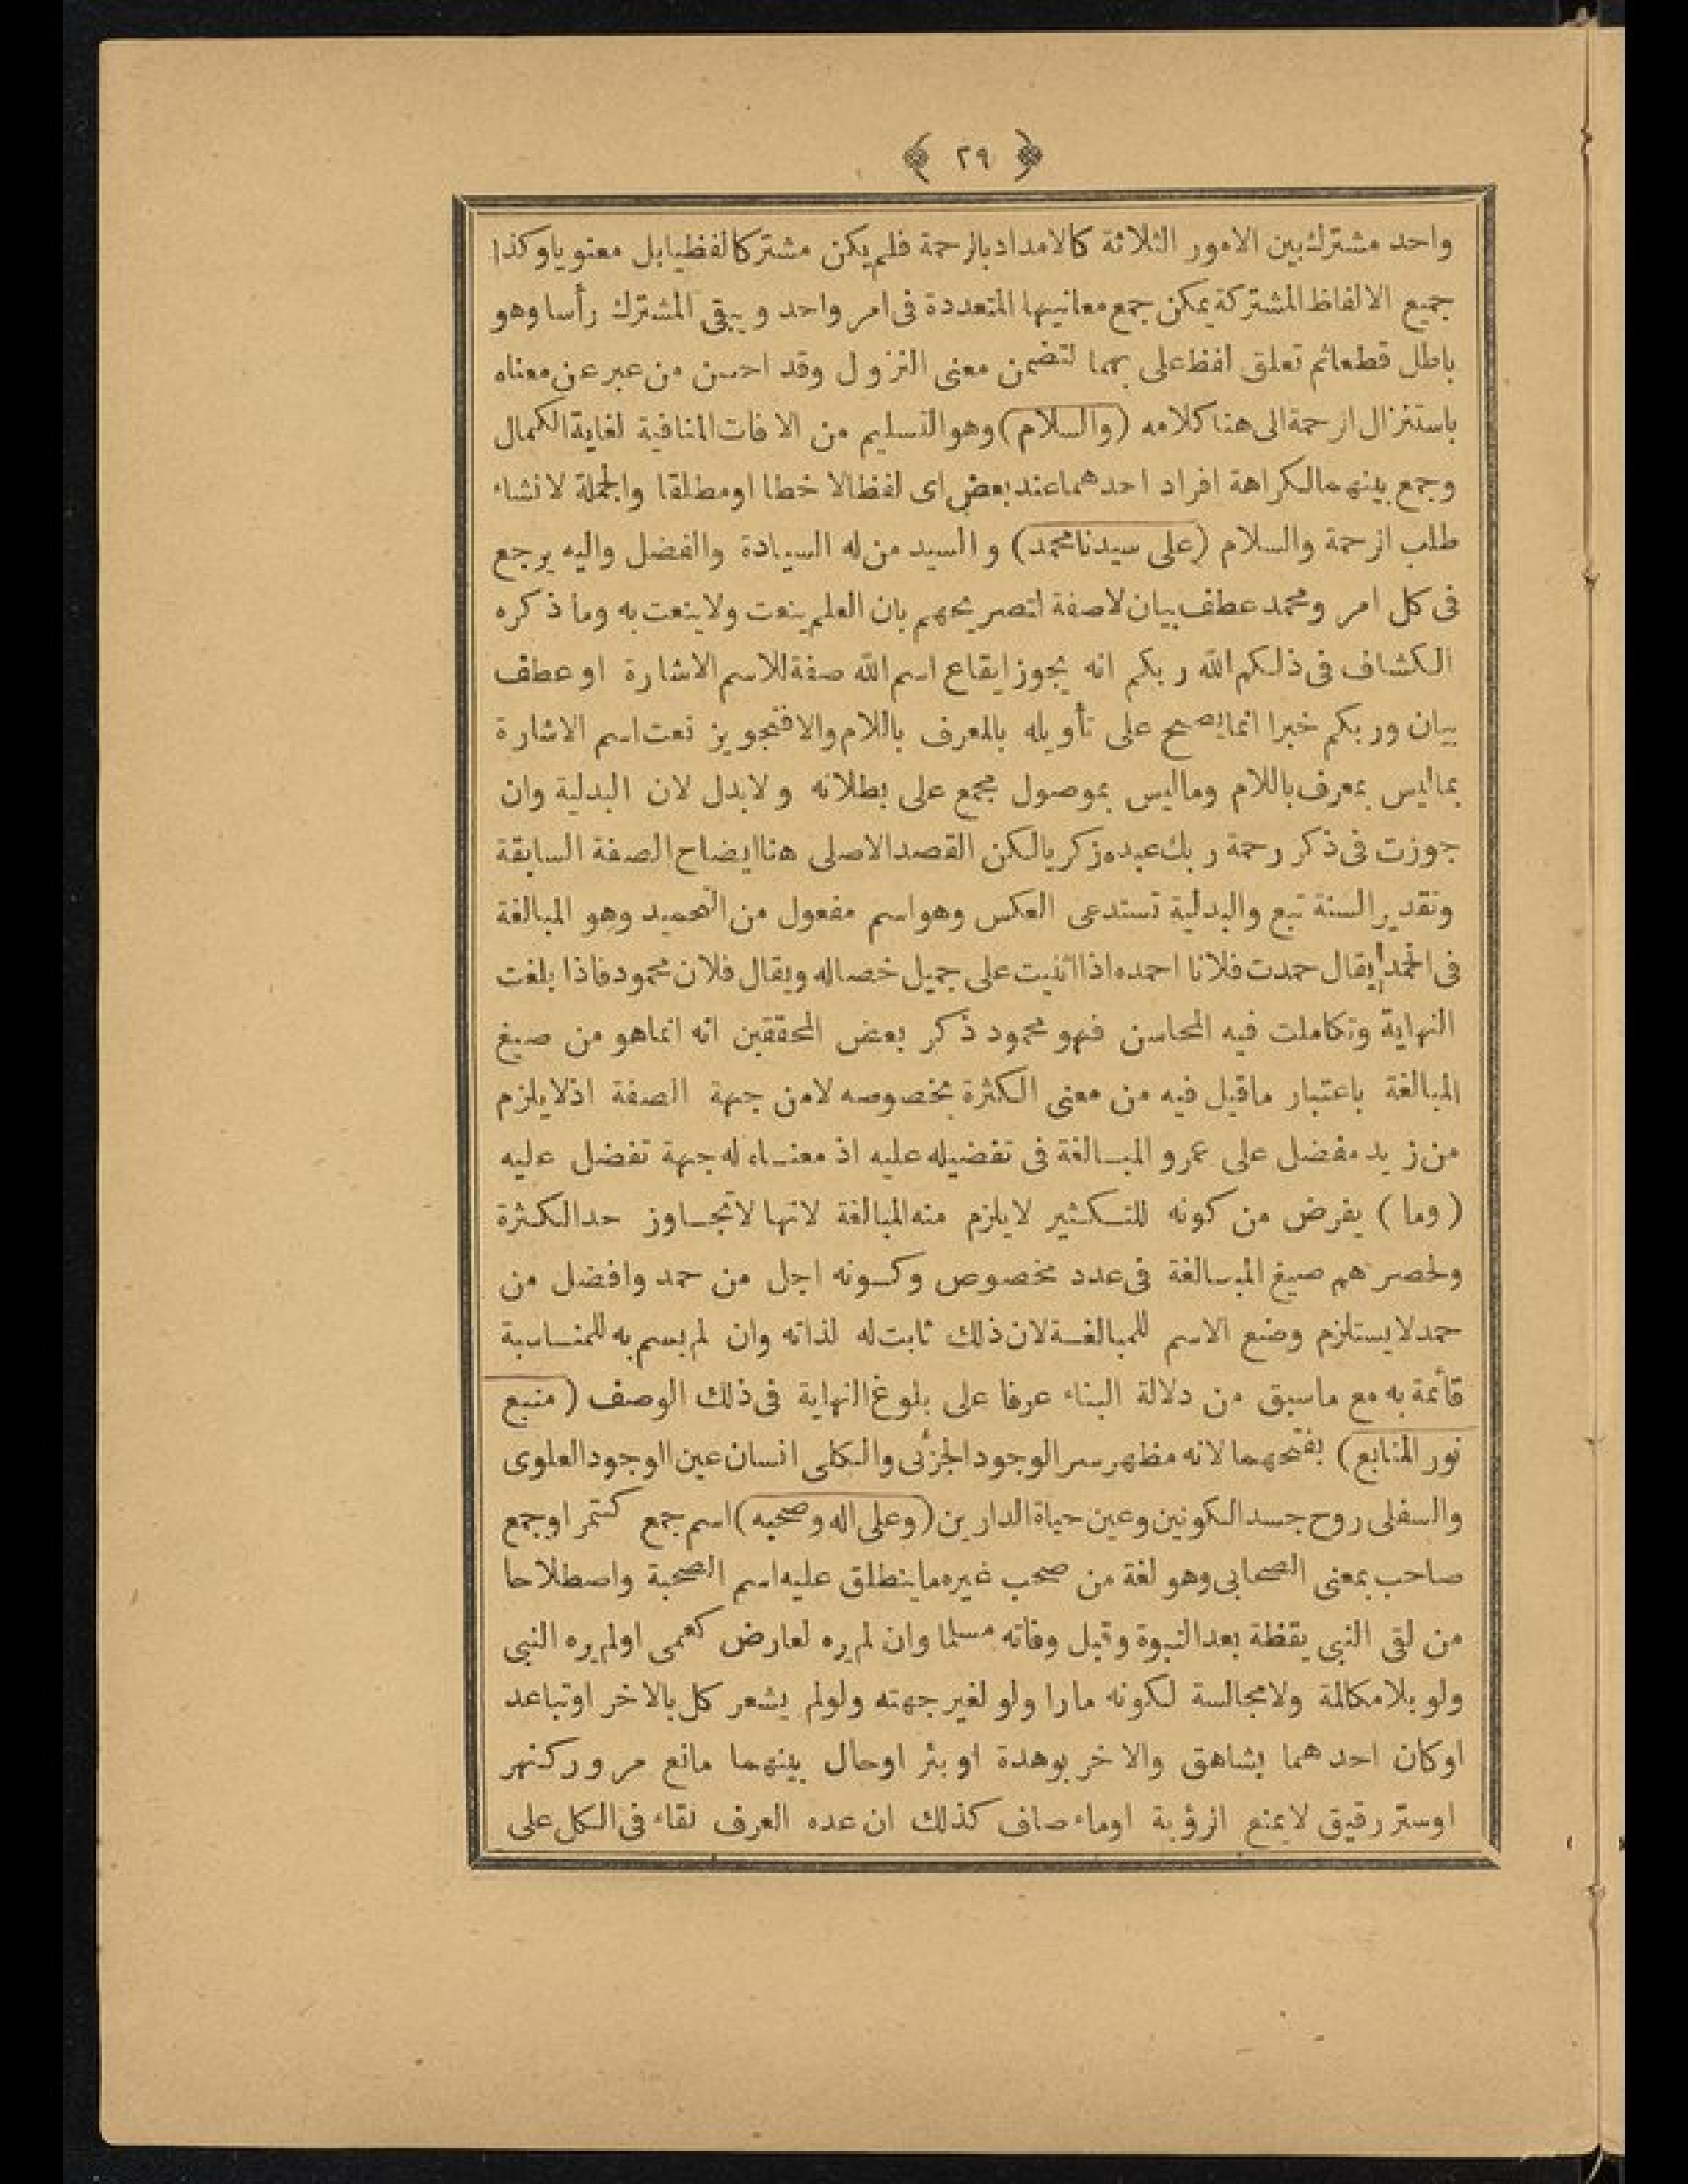 ﴿ ٢٩ ﴾
واحد مشترك بين الامور الثلاثة كالامداد بالرحمة فلم يكن مشتركا لفظيا بل معنويا وكذا
جميع الالفاظ المشتركة يمكن جمع معانيها المتعددة فى امر واحد ويبقى المشترك رأسا وهو
باطل قطعا ثم تعلق لفظ على بهما لتضمن معنى النزول وقد احسن من عبر عن معناه
باستنزال الرحمة الى هنا كلامه (والسلام) وهو التسليم من الافات المنافية لغاية الكمال
وجمع بينهما لكراهة افراد احدهما عند بعض اى لفظا لا خطا او مطلقا والجملة لانشاء
طلب الرحمة والسلام (على سيدنا محمد) والسيد من له السيادة والفضل واليه يرجع
فى كل امر ومحمد عطف بيان لاصفة لتصريحهم بان العلم ينعت ولا ينعت به وما ذكره
الكشاف فى ذلكم الله ربكم انه يجوز ايقاع اسم الله صفة للاسم الاشارة او عطف
بيان وربكم خبرا انما يصح على تأويله بالمعرف باللام والا فتجويز نعت اسم الاشارة
بماليس بمعرف باللام وماليس بموصول مجمع على بطلانه ولا بدل لان البدلية وان
جوزت فى ذكر رحمة ربك عبده زكريا لكن القصد الاصلى هنا ايضاح الصفة السابقة
وتقدير السنة تبع والبدلية تستدعى العكس وهو اسم مفعول من التحميد وهو المبالغة
فى الحمد يقال حمدت فلانا احمده اذا اثنيت على جميل خصاله ويقال فلان محمود فاذا بلغت
النهاية وتكاملت فيه المحاسن فهو محمود ذكر بعض المحققين انه انما هو من صيغ
المبالغة باعتبار ماقيل فيه من معنى الكثرة بخصوصه لامن جهة الصفة اذ لا يلزم
من زيد مفضل على عمرو المبالغة فى تفضيله عليه اذ معناه له جهة تفضل عليه
(وما) يفرض من كونه للتكثير لا يلزم منه المبالغة لانها لا تجاوز حد الكثرة
ولحصرهم صيغ المبالغة فى عدد مخصوص وكونه اجل من حمد وافضل من
حمد لا يستلزم وضع الاسم للمبالغة لان ذلك ثابت له لذاته وان لم يسم به للمناسبة
قائمة به مع ماسبق من دلالة البناء عرفا على بلوغ النهاية فى ذلك الوصف (منبع
نور المنابع) بفتحهما لانه مظهر سر الوجود الجزئى والكلى انسان عين الوجود العلوى
والسفلى روح جسد الكونين وعين حياة الدارين (وعلى اله وصحبه) اسم جمع كتمر او جمع
صاحب بمعنى الصحابى وهو لغة من صحب غيره ما ينطلق عليه اسم الصحبة واصطلاحا
من لقى النبى يقظة بعد النبوة وقبل وفاته مسلما وان لم يره لعارض كعمى او لم يره النبى
ولو بلا مكالمة ولا مجالسة لكونه مارا ولو لغير جهته ولو لم يشعر كل بالاخر او تباعد
او كان احدهما بشاهق والاخر بوهدة او بئر او حال بينهما مانع مرور كنهر
او ستر رقيق لا يمنع الرؤية او ماء صاف كذلك ان عده العرف لقاء فى الكل على